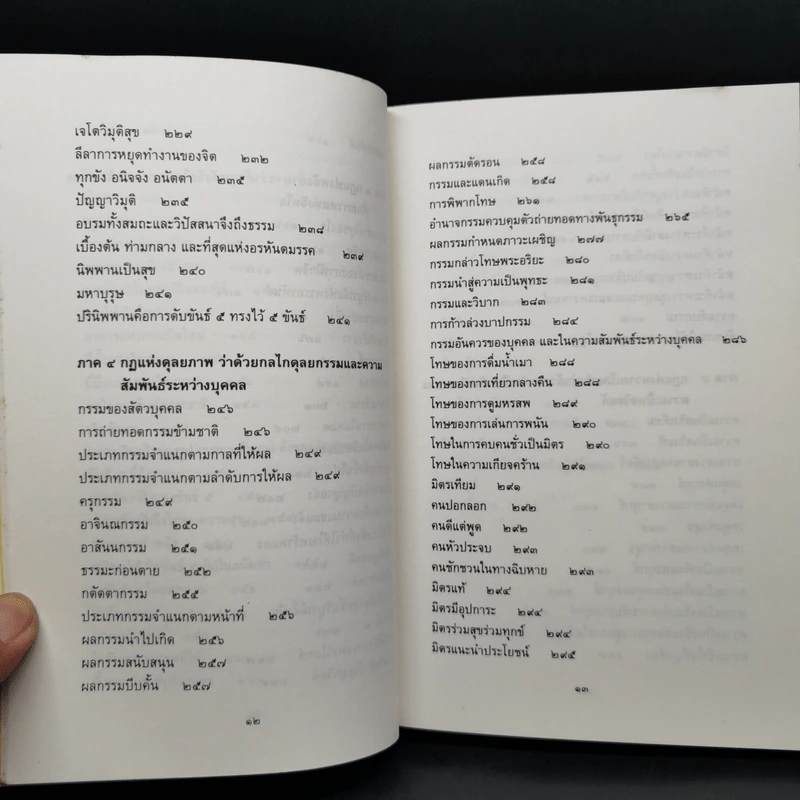 เจโตวิมุติสุข ๒๒๙
ลีลาการหยุดทำงานของจิต ๒๓๒
ทุกขัง อนิจจัง อนัตตา ๒๓๕
ปัญญาวิมุติ ๒๓๕
อบรมทั้งสมถะและวิปัสสนาจึงถึงธรรม ๒๓๘
เบื้องต้น ท่ามกลาง และที่สุดแห่งอรหันตมรรค ๒๓๙
นิพพานเป็นสุข ๒๔๐
มหาบุรุษ ๒๔๑
ปรินิพพานคือการดับขันธ์ ๕ ทรงไว้ ๕ ขันธ์ ๒๔๑
ภาค ๔ กฎแห่งดุลยภาพ ว่าด้วยกลไกดุลยกรรมและความ
สัมพันธ์ระหว่างบุคคล
กรรมของสัตวบุคคล ๒๔๖
การถ่ายทอดกรรมข้ามชาติ ๒๔๖
ประเภทกรรมจำแนกตามกาลที่ให้ผล ๒๔๙
ประเภทกรรมจำแนกตามลำดับการให้ผล ๒๔๙
ครุกรรม ๒๔๙
อาจิณณกรรม ๒๕๐
อาสันนกรรม ๒๕๑
ธรรมะก่อนตาย ๒๕๒
กตัตตากรรม ๒๕๕
ประเภทกรรมจำแนกตามหน้าที่ ๒๕๖
ผลกรรมนำไปเกิด ๒๕๖
ผลกรรมสนับสนุน ๒๕๗
ผลกรรมบีบคั้น ๒๕๗
๑๒
ผลกรรมตัดรอน ๒๕๘
กรรมและแดนเกิด ๒๕๘
การพิพากโทษ ๒๖๑
อำนาจกรรมควบคุมตัวถ่ายทอดทางพันธุกรรม ๒๖๕
ผลกรรมกำหนดภาวะเผชิญ ๒๗๗
กรรมกล่าวโทษพระอริยะ ๒๘๐
กรรมนำสู่ความเป็นพุทธะ ๒๘๑
กรรมและวิบาก ๒๘๓
การก้าวล่วงบาปกรรม ๒๘๔
กรรมอันควรของบุคคล และในความสัมพันธ์ระหว่างบุคคล ๒๘๖
โทษของการดื่มน้ำเมา ๒๘๘
โทษของการเที่ยวกลางคืน ๒๘๘
โทษของการดูมหรสพ ๒๘๙
โทษของการเล่นการพนัน ๒๙๐
โทษในการคบคนชั่วเป็นมิตร ๒๙๐
โทษในความเกียจคร้าน ๒๙๑
มิตรเทียม ๒๙๑
คนปอกลอก ๒๙๒
คนดีแต่พูด ๒๙๒
คนหัวประจบ ๒๙๓
คนชักชวนในทางฉิบหาย ๒๙๓
มิตรแท้ ๒๙๔
มิตรมีอุปการะ ๒๙๔
มิตรร่วมสุขร่วมทุกข์ ๒๙๔
มิตรแนะนำประโยชน์ ๒๙๕
๑๓